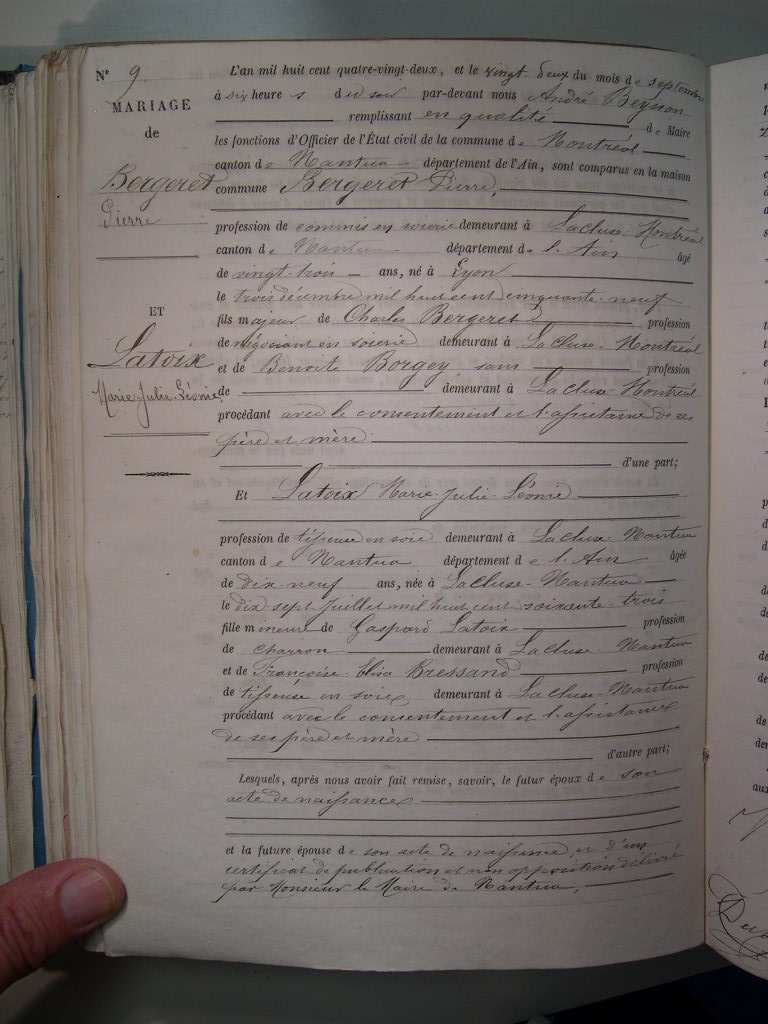 N° 9
MARIAGE
de
Bergeret
Pierre
ET
Latoix
Marie Julie Léonie
L'an mil huit cent quatre-vingt-deux, et le vingt deux du mois de septembre
à six heures du soir par-devant nous André Beynon
remplissant en qualité de Maire
les fonctions d'Officier de l'État civil de la commune de Montréal
canton de Nantua département de l'Ain, sont comparus en la maison
commune Bergeret Pierre,
profession de commis en soierie demeurant à La cluse-Montréal
canton de Nantua département de l'Ain âgé
de vingt-trois ans, né à Lyon
le trois décembre mil huit cent cinquante-neuf
fils majeur de Charles Bergeret profession
de négociant en soierie demeurant à La Cluse-Montréal
et de Benoite Borgey sans profession
de demeurant à La Cluse-Montréal
procédant avec le consentement et l'assistance de ses
père et mère
d'une part;
Et Latoix Marie-Julie-Léonie
profession de tisseuse en soie demeurant à La Cluse-Nantua
canton de Nantua département de l'Ain âgée
de dix-neuf ans, née à La Cluse-Nantua
le dix sept Juillet mil huit cent soixante-trois
fille mineure de Gaspard Latoix profession
de charron demeurant à La Cluse-Nantua
et de Françoise-Elisa Bressand profession
de tisseuse en soie demeurant à La Cluse-Nantua
procédant avec le consentement et l'assistance
de ses père et mère
d'autre part;
Lesquels, après nous avoir fait remise, savoir, le futur époux de son
acte de naissance
et la future épouse de son acte de naissance, et d'un
certificat de publication et non opposition délivré
par Monsieur le Maire de Nantua,